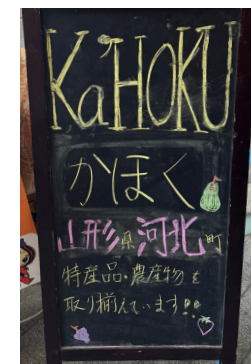 Ka'HOKU
かほく
山形県河北町
特産品・農産物を
取り揃えています!!